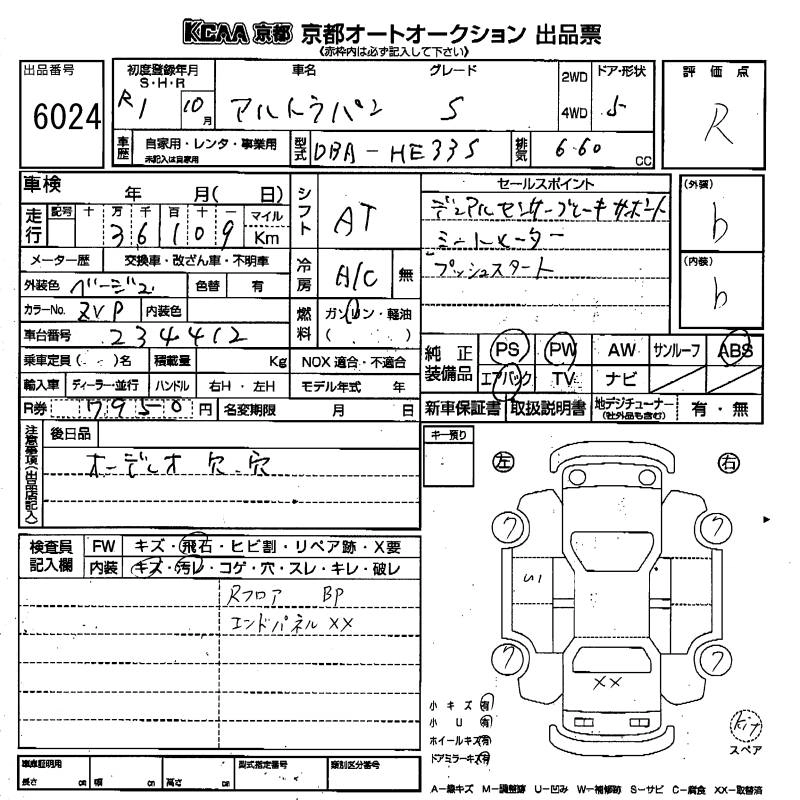 KCAA 京都 京都オートオークション 出品票
《赤枠内は必ず記入して下さい》
出品番号
6024
初度登録年月
S・H・R
R1 10月
車名 グレード
アルトラパン S
2WD
4WD
ドア・形状
5
評価点
R
車歴 自家用・レンタ・事業用
未記入は自家用
型式 DBA-HE33S
排気 660 CC
車検 年 月( 日)
走行 記号 十 万 千 百 十 一 マイル
36109 Km
シフト AT
メーター歴 交換車・改ざん車・不明車
冷房 A/C 無
外装色 ベージュ 色替 有
カラーNo. ZVP 内装色
燃料 ガソリン・軽油
( )
車台番号 234412
乗車定員( )名 積載量 Kg NOX 適合・不適合
輸入車 ディーラー・並行 ハンドル 右H・左H モデル年式 年
R券 7950円 名変期限 月 日
セールスポイント
デュアルセンサーブレーキサポート
ミートメーター
プッシュスタート
(外装)
b
(内装)
b
純正装備品 PS PW AW サンルーフ ABS
エアバック TV ナビ
新車保証書 取扱説明書 地デジチューナー
(社外品も含む) 有・無
注意事項(出品店記入)
後日品
オーディオ 欠.穴
キー預り
左 右
検査員記入欄 FW キズ・飛石・ヒビ割・リペア跡・X要
内装 キズ・汚レ・コゲ・穴・スレ・キレ・破レ
Rフロア BP
エンドパネル XX
7 7
S1
7 7
XX
小キズ 有
小U 有
ホイールキズ 有
ドアミラーキズ 有
kit
スペア
車庫証明用
長さ cm 幅 cm 高さ cm
型式指定番号 類別区分番号
A−線キズ M−調整跡 U−凹み W−補修跡 S−サビ C−腐食 XX−取替済